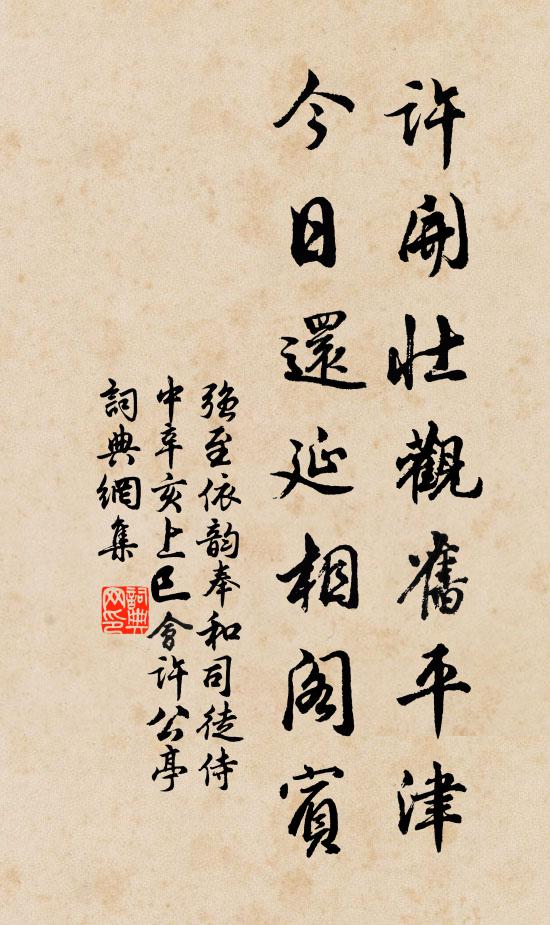 許開壯觀舊平津
今日還延相閣賓
強至依韵奉和司徒侍
中辛亥上巳會許公亭
詞典網集
詞典
网印